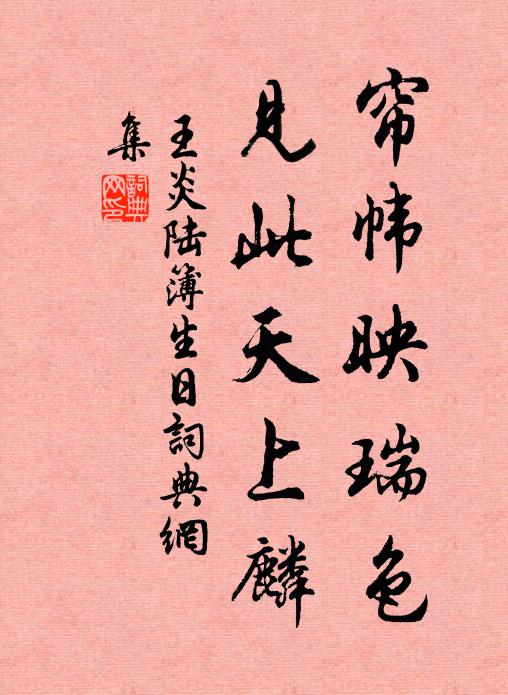 帘帏映瑞色
见此天上麟
王炎陆簿生日詞典網
集
詞典
网印